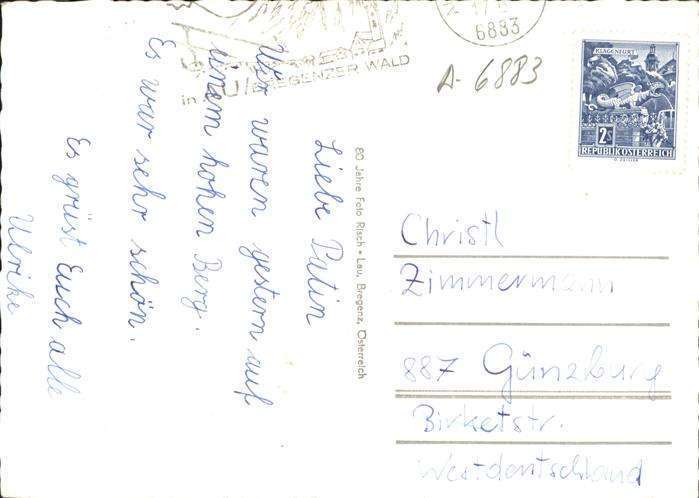 6883
in AU/BREGENZER WALD
A-6883
KLAGENFURT
2S
REPUBLIK ÖSTERREICH
Liebe Patin
Wir waren gestern auf
einem hohen Berg.
Es war sehr schön.
Es grüst Euch alle
Ulrike
80 Jahre Foto Risch • Lau, Bregenz, Österreich
Christl
Zimmermann
887 Günzburg
Birketstr.
Westdeutschland